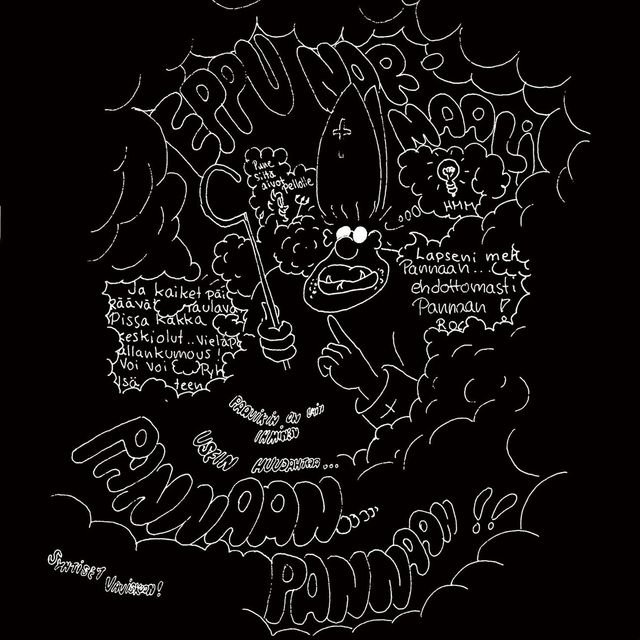 EPPU NORMAALI
Pane
siitä
aivopellolle
HMM
Lapseni meh
Pannaan...
ehdottomasti
Pannaan !
ROC
Ja kaiket päi
räävät raulava
Pissa kakka
keskiolut.. vieläpä
allankumous !
Voi voi
Isä teen
PAAVIKIN ON VIIN
IHMINEN
USEIN HUUDAHTAA...
PANNAAN....
PANNAAN !!
SYNTISET